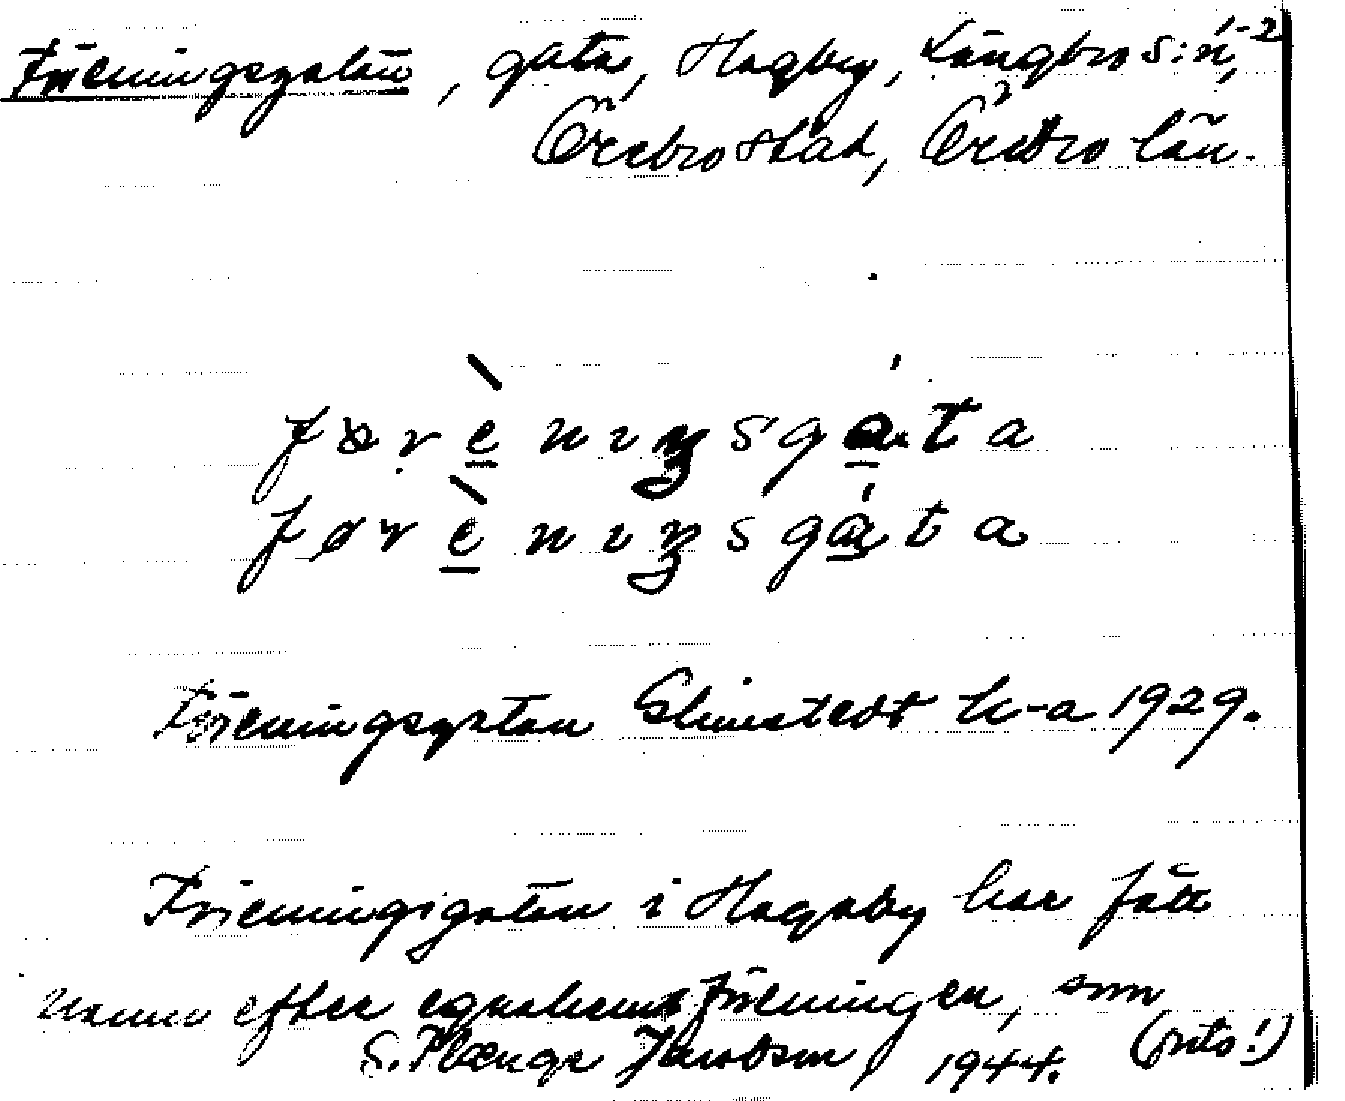 Föreningsgatan, gata, Hagby, Längbro s:n, 1-2
Örebro stad, Örebro län.
førèniŋsgáta
førèniŋsgáta
Föreningsgatan Elmstedt h-a 1929.
Föreningsgatan i Hagaby har fått
namn efter egnahemsföreningen, som
S. Plænge Jacobson 1944. (verto!)